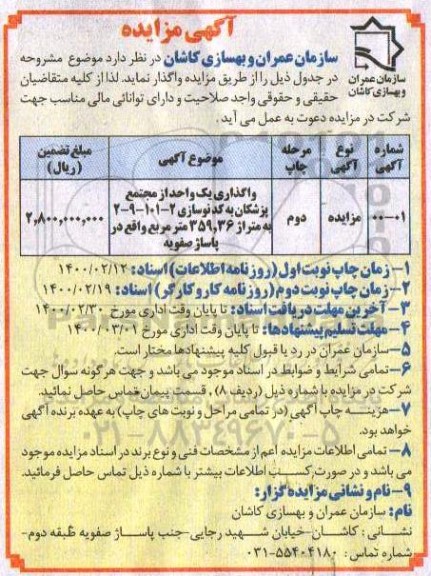 آگهی مزایده
سازمان عمران و بهسازی کاشان
سازمان عمران و بهسازی کاشان در نظر دارد موضوع مشروحه
در جدول ذیل را از طریق مزایده واگذار نماید. لذا از کلیه متقاضیان
حقیقی و حقوقی واجد صلاحیت و دارای توانائی مالی مناسب جهت
شرکت در مزایده دعوت به عمل می آید.
شماره آگهی نوع آگهی مرحله چاپ موضوع آگهی مبلغ تضمین (ریال)
۰۰-۰۱ مزایده دوم واگذاری یک واحد از مجتمع
پزشکان به کد نوسازی ۲-۱۰۱-۹-۲
به متراژ ۳۵۹,۳۶ متر مربع واقع در
پاساژ صفویه
۲,۸۰۰,۰۰۰,۰۰۰
۱- زمان چاپ نوبت اول (روزنامه اطلاعات) اسناد: ۱۴۰۰/۰۲/۱۲
۲- زمان چاپ نوبت دوم (روزنامه کار و کارگر) اسناد: ۱۴۰۰/۰۲/۱۹
۳- آخرین مهلت دریافت اسناد: تا پایان وقت اداری مورخ ۱۴۰۰/۰۲/۳۰
۴- مهلت تسلیم پیشنهادها: تا پایان وقت اداری مورخ ۱۴۰۰/۰۳/۰۱
۵- سازمان عمران در رد یا قبول کلیه پیشنهادها مختار است.
۶- تمامی شرایط و ضوابط در اسناد موجود می باشد و جهت هر گونه سوال جهت
شرکت در مزایده با شماره ذیل (ردیف ۸)، قسمت پیمان تماس حاصل نمائید.
۷- هزینه چاپ آگهی (در تمامی مراحل و نوبت های چاپ) به عهده برنده آگهی
خواهد بود.
۸- تمامی اطلاعات مزایده اعم از مشخصات فنی و نوع برند در اسناد مزایده موجود
می باشد و در صورت کسب اطلاعات بیشتر با شماره ذیل تماس حاصل فرمائید.
۹- نام و نشانی مزایده گزار:
نام: سازمان عمران و بهسازی کاشان
نشانی: کاشان-خیابان شهید رجایی-جنب پاساژ صفویه طبقه دوم-
شماره تماس: ۵۵۴۰۴۱۸۰-۰۳۱
۰۲۱-۸۸۳۴۹۶۷۰-۵